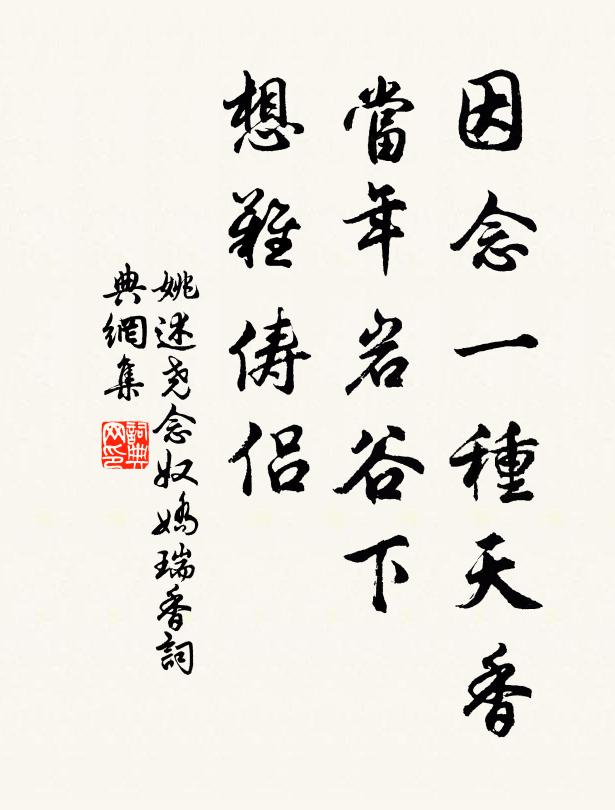 因念一種天香
當年岩谷下
想難儔侶
姚述尧念奴嬌瑞香詞
典網集
詞典
网印